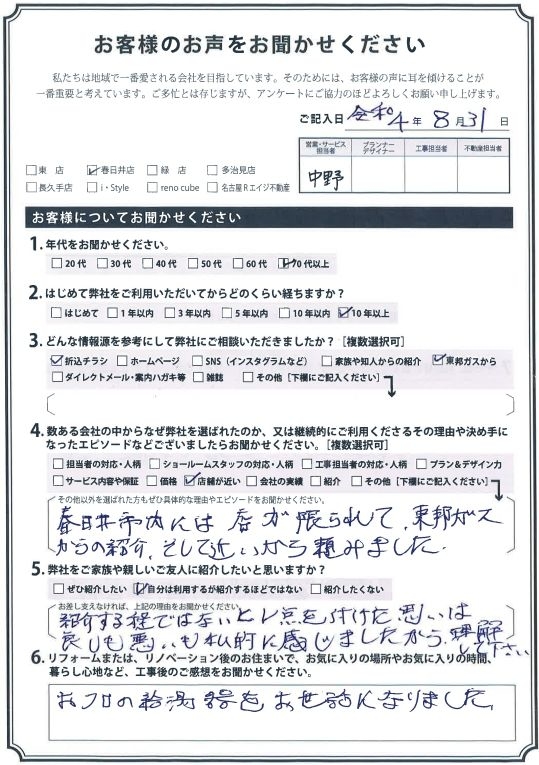 お客様のお声をお聞かせください
私たちは地域で一番愛される会社を目指しています。そのためには、お客様の声に耳を傾けることが
一番重要と考えています。ご多忙とは存じますが、アンケートにご協力のほどよろしくお願い申し上げます。
ご記入日 令和4年 8月31日
営業・サービス担当者 プランナーデザイナー 工事担当者 不動産担当者
中野
□東 店 ☑春日井店 □緑 店 □多治見店
□長久手店 □i・Style □reno cube □名古屋Rエイジ不動産
お客様についてお聞かせください
1. 年代をお聞かせください。
□20代 □30代 □40代 □50代 □60代 ☑70代以上
2. はじめて弊社をご利用いただいてからどのくらい経ちますか?
□はじめて □1年以内 □3年以内 □5年以内 □10年以内 ☑10年以上
3. どんな情報源を参考にして弊社にご相談いただきましたか?[複数選択可]
☑折込チラシ □ホームページ □SNS(インスタグラムなど) □家族や知人からの紹介 ☑東邦ガスから
□ダイレクトメール・案内ハガキ等 □雑誌 □その他[下欄にご記入ください]
4. 数ある会社の中からなぜ弊社を選ばれたのか、又は継続的にご利用くださるその理由や決め手に
なったエピソードなどございましたらお聞かせください。[複数選択可]
□担当者の対応・人柄 □ショールームスタッフの対応・人柄 □工事担当者の対応・人柄 □プラン&デザイン力
□サービス内容や保証 □価格 ☑店舗が近い □会社の実績 □紹介 □その他[下欄にご記入ください]
その他以外を選ばれた方もぜひ具体的な理由やエピソードをお聞かせください。
春日井市内には店が限られて、東邦ガス
からの紹介、そして近いから頼みました。
5. 弊社をご家族や親しいご友人に紹介したいと思いますか?
□ぜひ紹介したい ☑自分は利用するが紹介するほどではない □紹介したくない
お差し支えなければ、上記の理由をお聞かせください
紹介する程ではないとレ点を付けた思いは
良しも悪いも私的に感じましたから理解
して下さい
6. リフォームまたは、リノベーション後のお住まいで、お気に入りの場所やお気に入りの時間、
暮らし心地など、工事後のご感想をお聞かせください。
おフロの給湯器をお世話になりました。